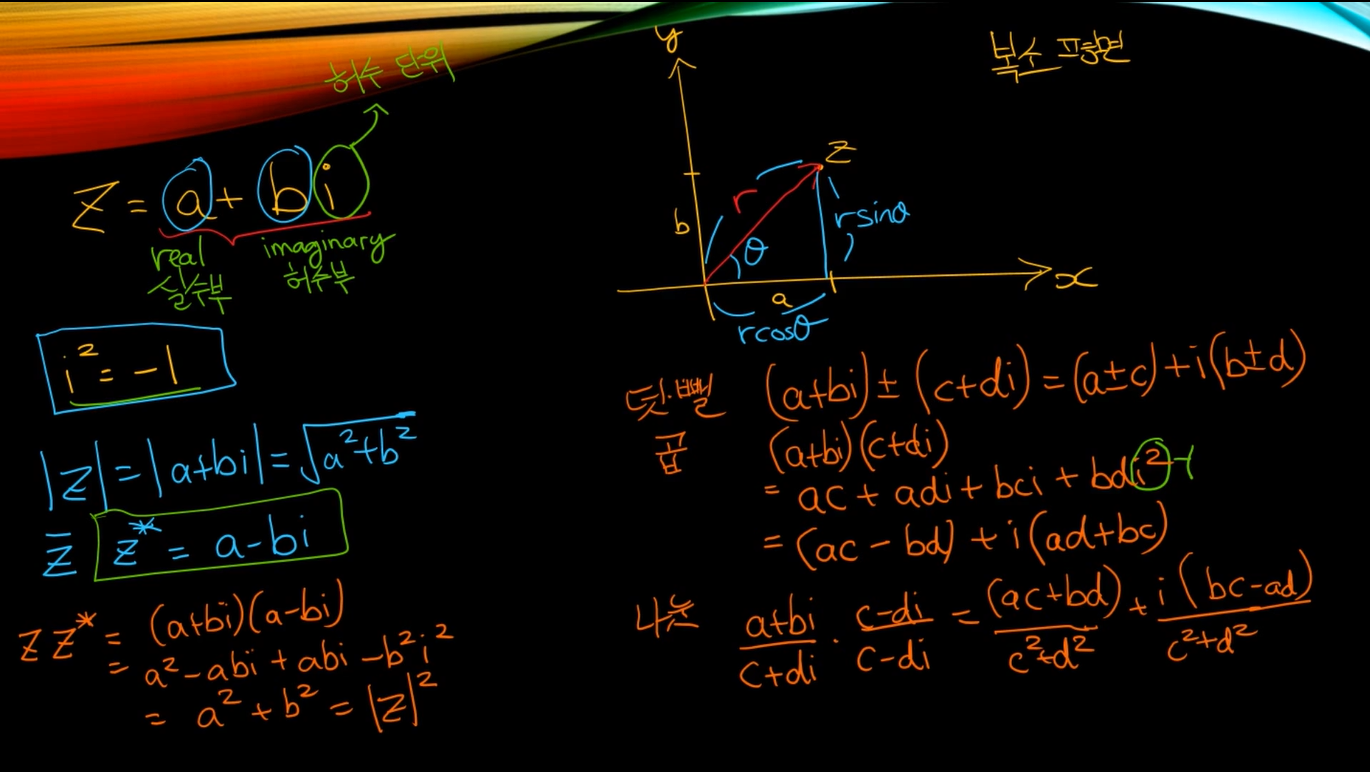 허수 단위
Z = a + bi
real
실수부
imaginary
허수부
i² = -1
|z| = |a+bi| = √(a²+b²)
z̄ z* = a-bi
zz* = (a+bi)(a-bi)
= a² - abi + abi - b²i²
= a² + b² = |z|²
복소 평면
y
z
r
b
θ
rsinθ
x
a
rcosθ
덧·뺄 (a+bi) ± (c+di) = (a±c) + i(b±d)
곱 (a+bi)(c+di)
= ac + adi + bci + bdi² -1
= (ac - bd) + i(ad+bc)
나눗 (a+bi)/(c+di) · (c-di)/(c-di) = (ac+bd)/(c²+d²) + i(bc-ad)/(c²+d²)